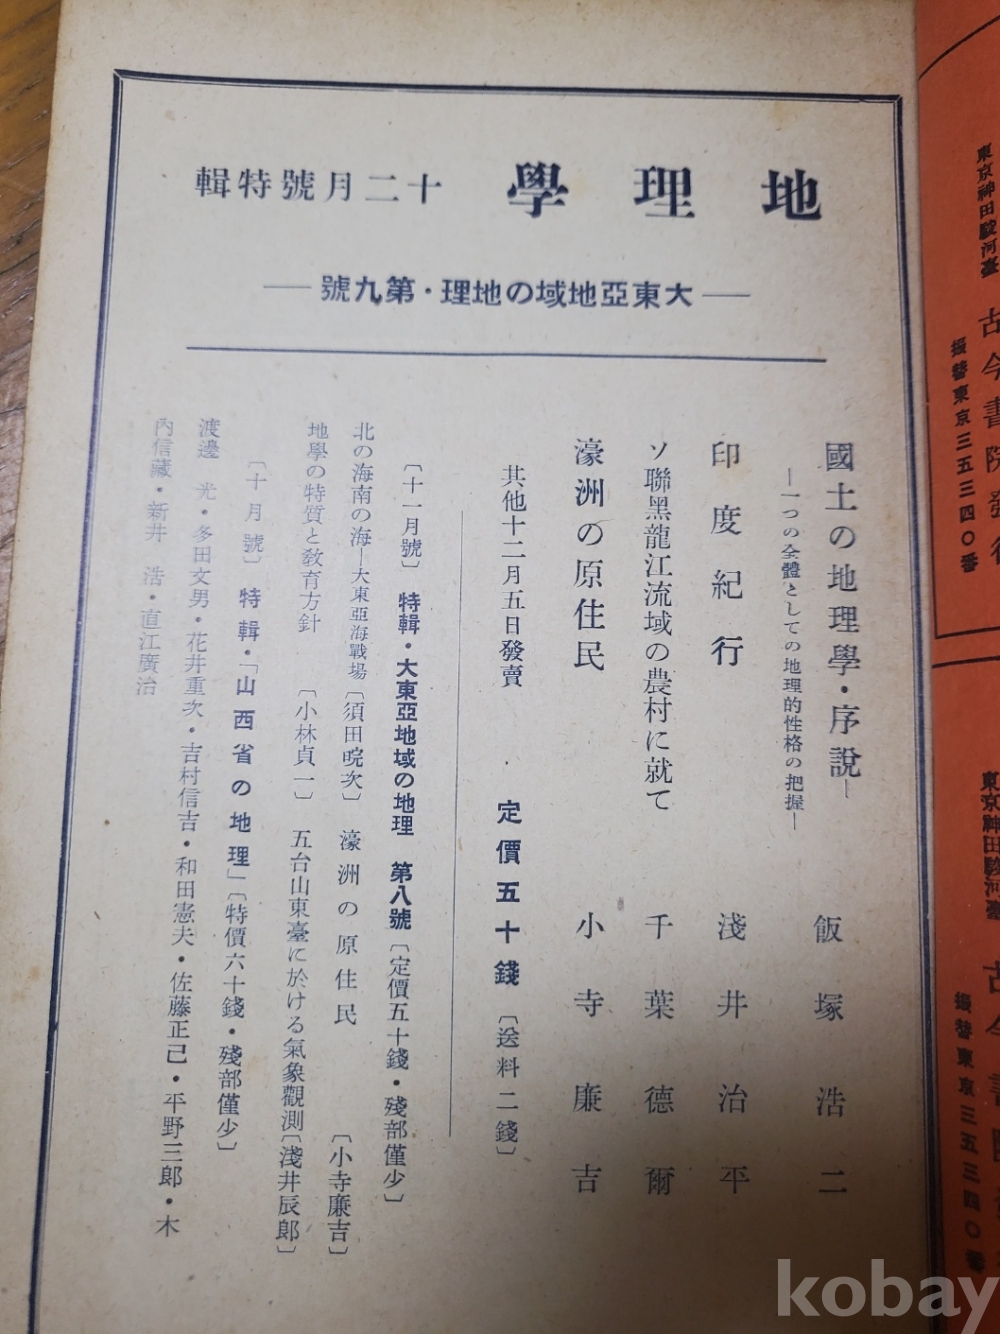 地理學 十二月號特輯
―大東亞地域の地理・第九號―
國土の地理學・序說―
―一つの全體としての地理的性格の把握―
飯塚浩二
印度紀行 淺井治平
ソ聯黑龍江流域の農村に就て 千葉德爾
濠洲の原住民 小寺廉吉
其他十二月五日發賣 定價五十錢〔送料二錢〕
〔十一月號〕特輯・大東亞地域の地理 第八號〔定價五十錢・殘部僅少〕
北の海南の海―大東亞海戰場〔須田晥次〕 濠洲の原住民〔小寺廉吉〕
地學の特質と敎育方針〔小林貞一〕 五台山東臺に於ける氣象觀測〔淺井辰郞〕
〔十月號〕特輯・「山西省の地理」〔特價六十錢・殘部僅少〕
渡邊光・多田文男・花井重次・吉村信吉・和田憲夫・佐藤正己・平野三郞・木
內信藏・新井浩・直江廣治
東京神田駿河臺
古今書院發行
振替東京三五三四〇番
東京神田駿河臺
古今書
振替東京三五三四〇番
kobay